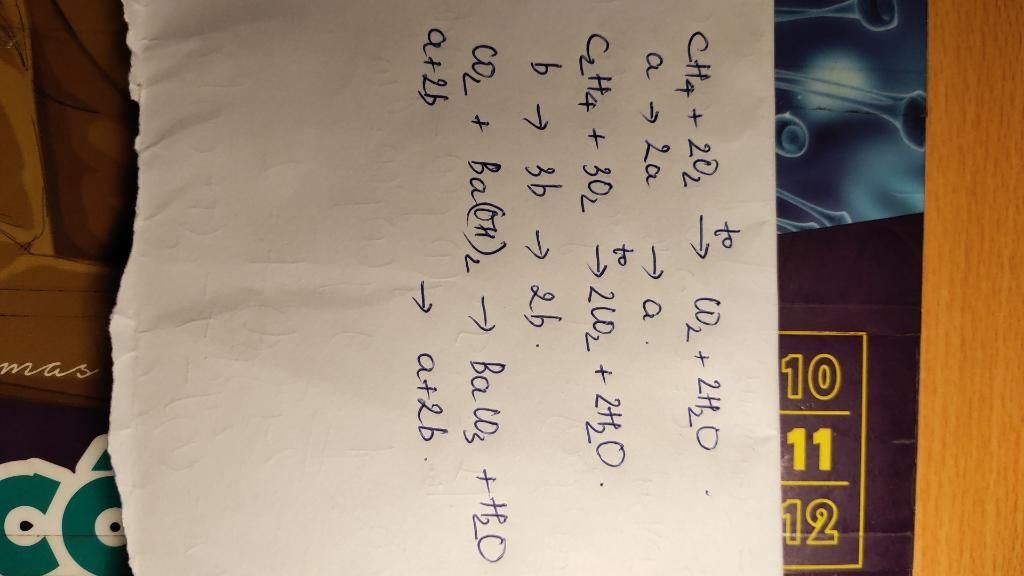 CH4 + 2O2 →(to) CO2 + 2H2O .
a → 2a → a .
C2H4 + 3O2 →(to) 2CO2 + 2H2O .
b → 3b → 2b .
CO2 + Ba(OH)2 → BaCO3 + H2O
a+2b → a+2b .
10
11
12
mas